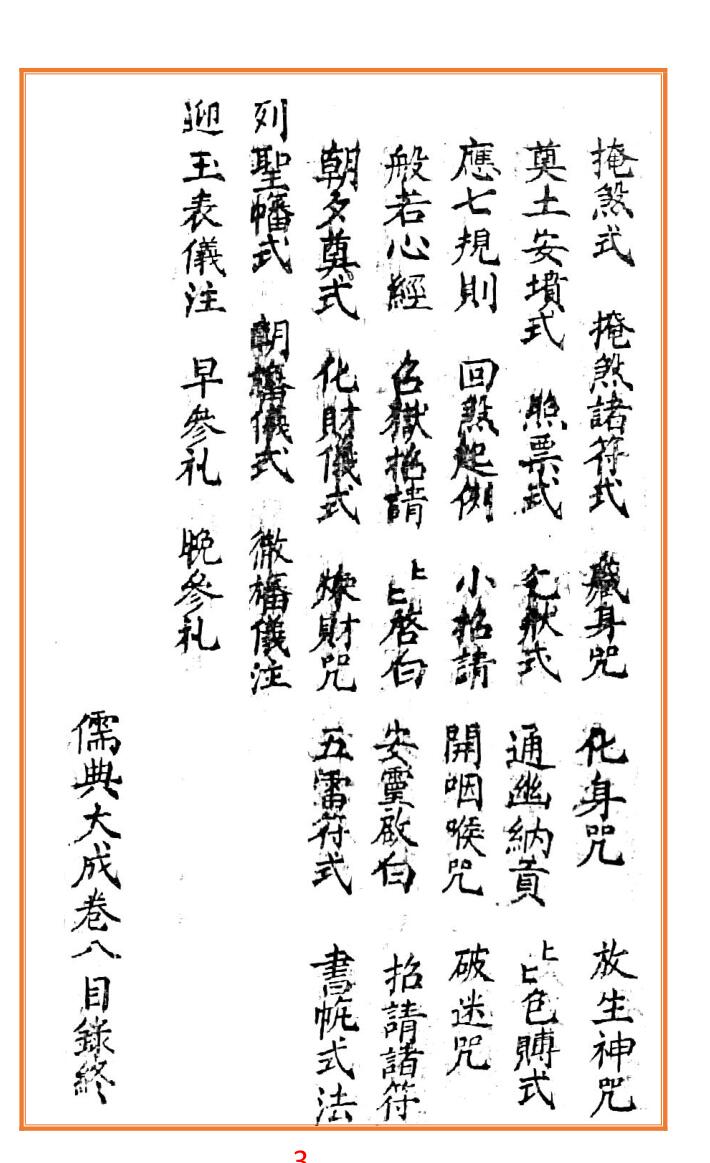 掩煞式 掩煞諸符式 藏身咒 化身咒 放生神咒
奠土安墳式 照票式 式 通幽納貢 色賻式
應七規則 回煞起例 小招請 開咽喉咒 破迷咒
般若心經 召獄招請 啓白 安靈啟白 招請諸符
朝夕奠式 化財儀式 煉財咒 五雷符式 書帨式法
列聖幡式 朝旛儀式 徹旛儀注
迎玉表儀注 早參礼 晚參礼
儒典大成卷八目錄終
3